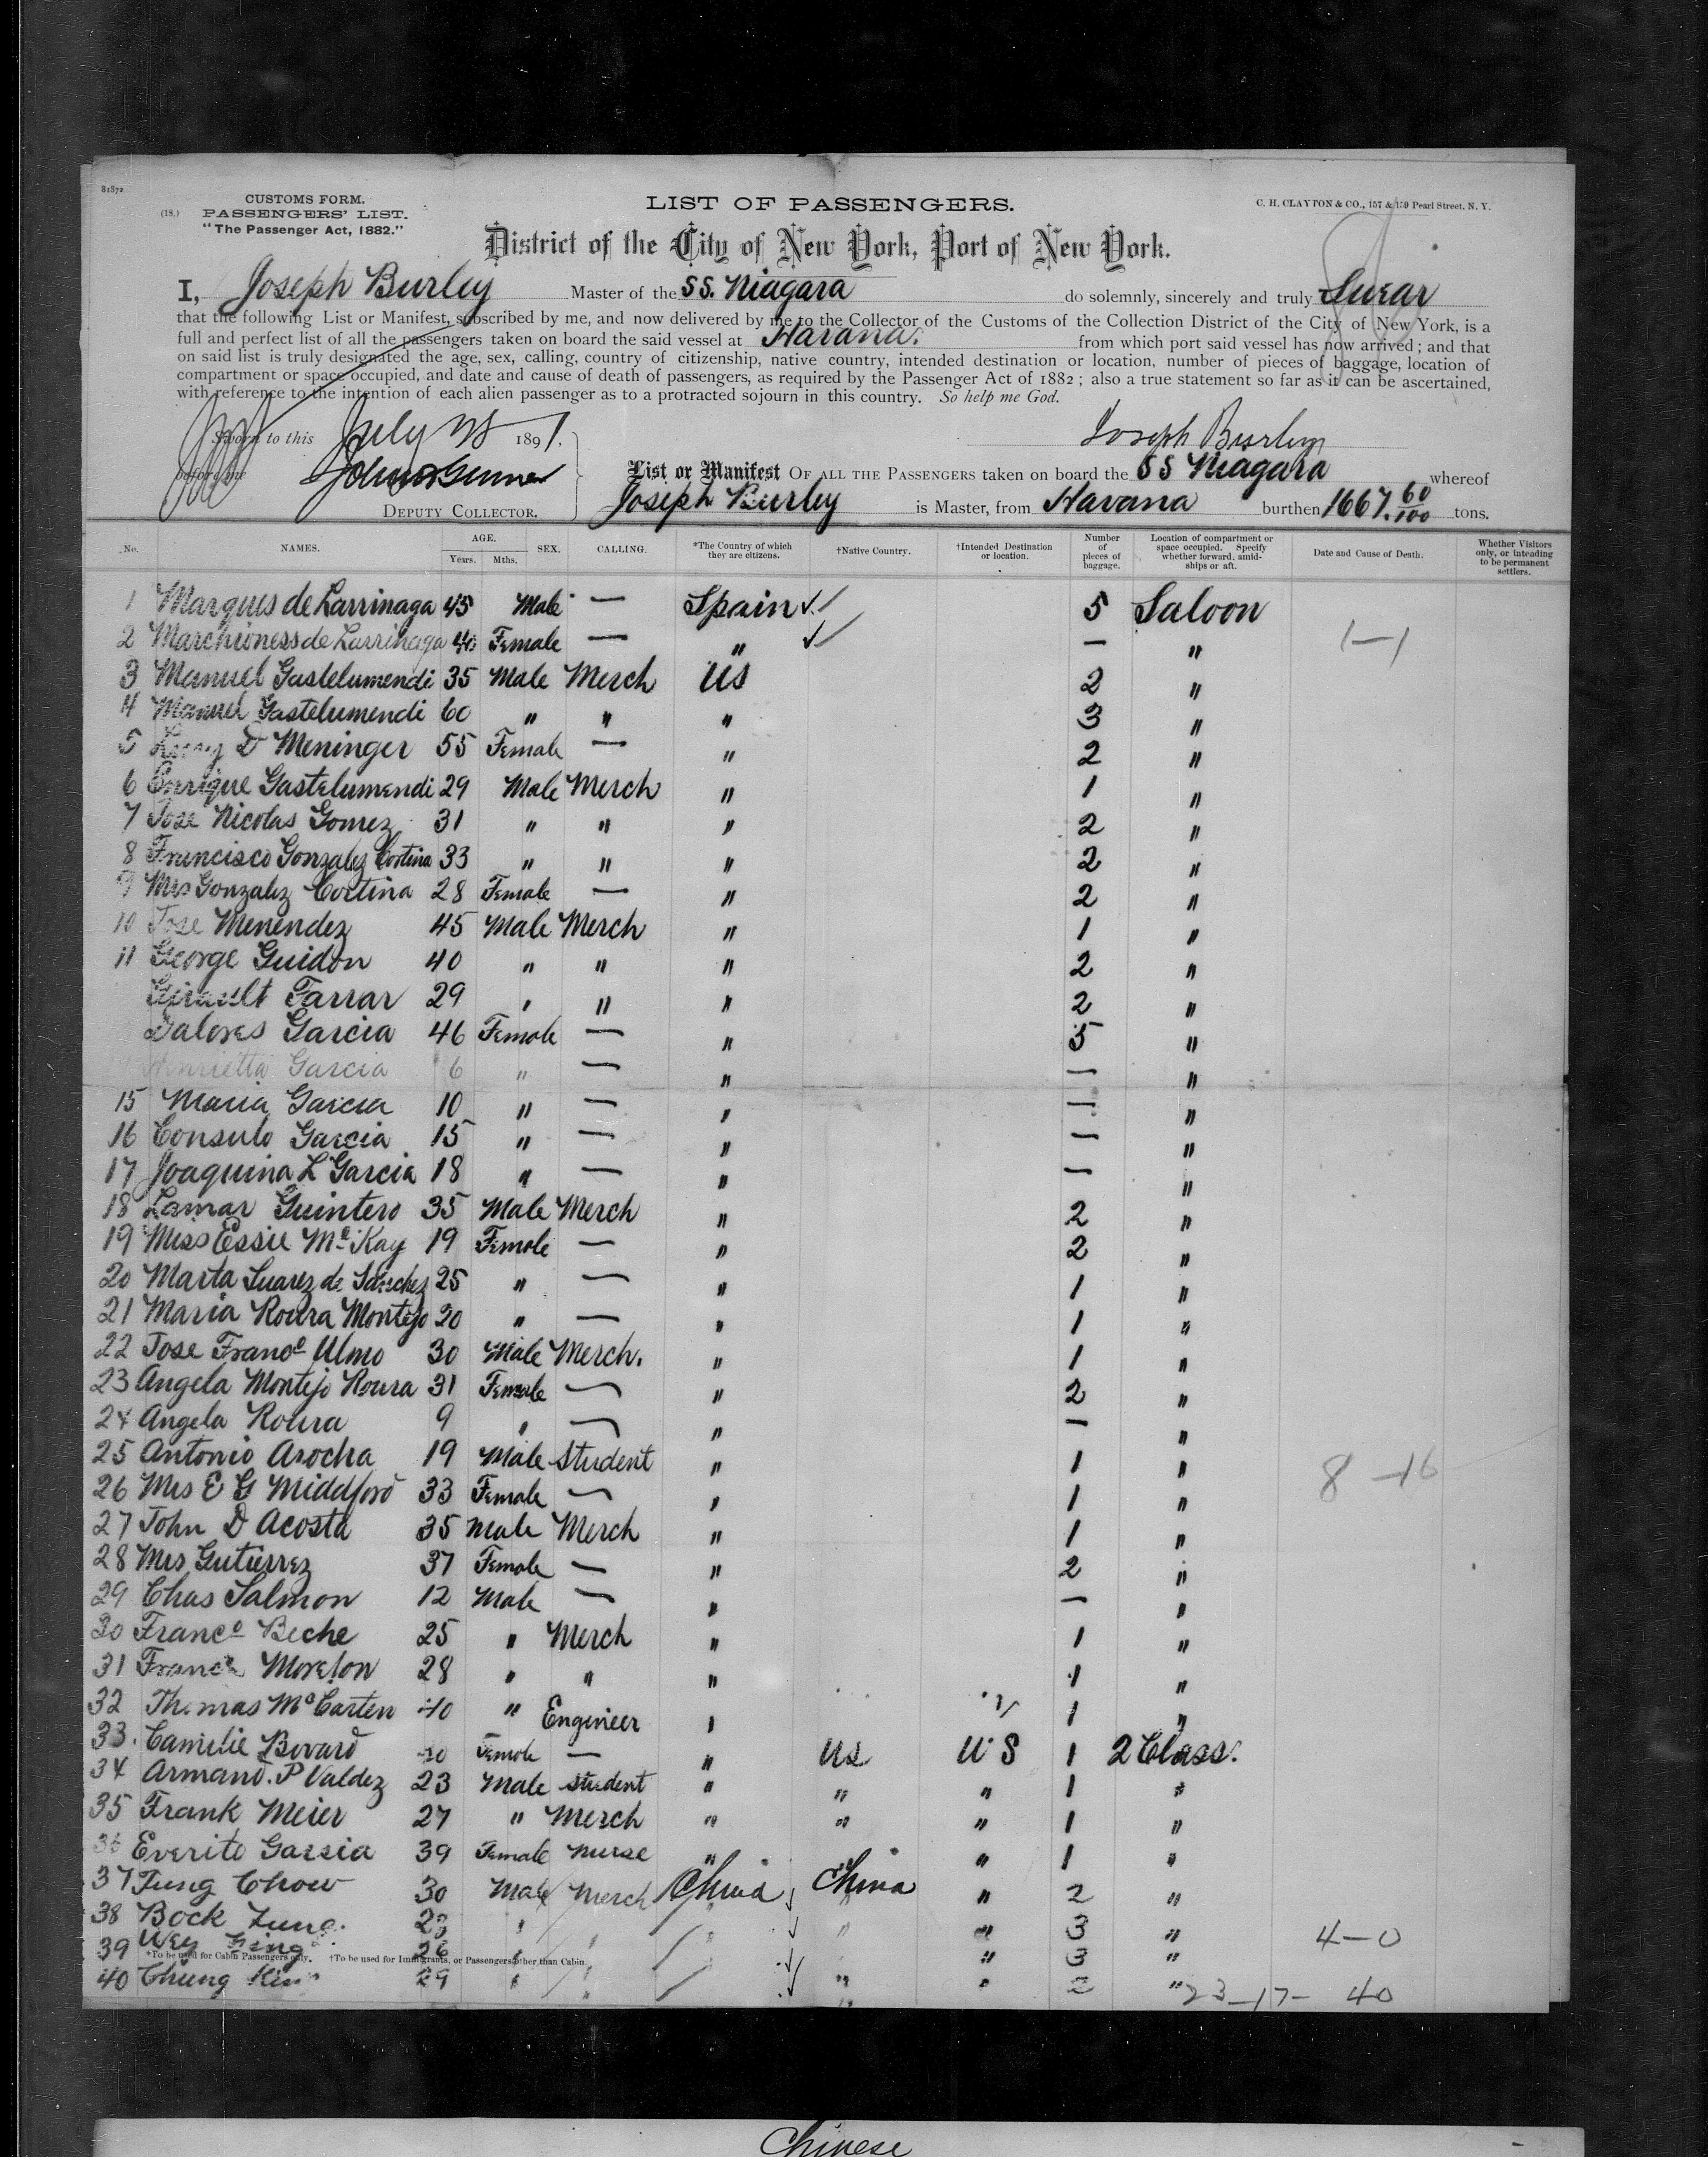 81872
CUSTOMS FORM.
(18.) PASSENGERS' LIST.
"The Passenger Act, 1882."
LIST OF PASSENGERS.
C. H. CLAYTON & CO., 157 & 159 Pearl Street, N. Y.
District of the City of New York, Port of New York.
I, Joseph Burley Master of the SS. Niagara do solemnly, sincerely and truly Swear
that the following List or Manifest, subscribed by me, and now delivered by me to the Collector of the Customs of the Collection District of the City of New York, is a
full and perfect list of all the passengers taken on board the said vessel at Havana. from which port said vessel has now arrived; and that
on said list is truly designated the age, sex, calling, country of citizenship, native country, intended destination or location, number of pieces of baggage, location of
compartment or space occupied, and date and cause of death of passengers, as required by the Passenger Act of 1882; also a true statement so far as it can be ascertained,
with reference to the intention of each alien passenger as to a protracted sojourn in this country. So help me God.
Sworn to this July 1891.
Joseph Burley
before me
DEPUTY COLLECTOR.
List or Manifest OF ALL THE PASSENGERS taken on board the SS Niagara whereof
Joseph Burley is Master, from Havana burthen 1667. 60/100 tons.
No. NAMES. AGE. Years. Mths. SEX. CALLING. *The Country of which they are citizens. †Native Country. †Intended Destination or location. Number of pieces of baggage. Location of compartment or space occupied. Specify whether forward, amidships or aft. Date and Cause of Death. Whether Visitors only, or intending to be permanent settlers.
1 Marques de Larrinaga 45 Male — Spain 5 Saloon
2 Marchioness de Larrinaga 40 Female — " — " 1—1
3 Manuel Gastelumendi 35 Male Merch US 2 "
4 Manuel Gastelumendi 60 " " " 3 "
5 D Meninger 55 Female — " 2 "
6 Enrique Gastelumendi 29 Male Merch " 1 "
7 Jose Nicolas Gomez 31 " " " 2 "
8 Francisco Gonzalez Cortina 33 " " " 2 "
9 Mrs Gonzalez Cortina 28 Female — " 2 "
10 Jose Menendez 45 Male Merch " 1 "
11 George Guidon 40 " " " 2 "
Girault Farrar 29 " " " 2 "
Dalores Garcia 46 Female — " 5 "
Henrietta Garcia 6 " — " — "
15 Maria Garcia 10 " — " — "
16 Consulo Garcia 15 " — " — "
17 Joaquina L Garcia 18 " — " — "
18 Lamar Quintero 35 Male Merch " 2 "
19 Miss Essie McKay 19 Female — " 2 "
20 Marta Suarez de Sanchez 25 " — " 1 "
21 Maria Roura Montejo 20 " — " 1 "
22 Jose Franco Ulmo 30 Male Merch. " 1 "
23 Angela Montejo Roura 31 Female — " 2 "
24 Angela Roura 9 " — " — "
25 Antonio Arocha 19 Male Student " 1 "
26 Mrs E G Middford 33 Female — " 1 " 8—16
27 John D Acosta 35 Male Merch " 1 "
28 Mrs Gutierrez 37 Female — " 2 "
29 Chas Salmon 12 Male — " — "
30 Franco Beche 25 " Merch " 1 "
31 Moreton 28 " " " 1 "
32 Thomas McCarten 40 " Engineer " 1 "
33. Camelie Bovard Female — " US U S 1 2 Class.
34 Armand. P Valdez 23 Male student " " " 1 "
35 Frank Meier 27 " Merch " " " 1 "
36 Everito Garsia 39 Female Nurse " " 1 "
37 Tung Chow 30 Male Merch China China " 2 "
38 Bock 23 " " " 3 "
39 Wey 26 " " 3 " 4—0
*To be used for Cabin Passengers only. †To be used for Immigrants, or Passengers other than Cabin.
40 Chung 29 " " " 2 "
23—17— 40
Chinese